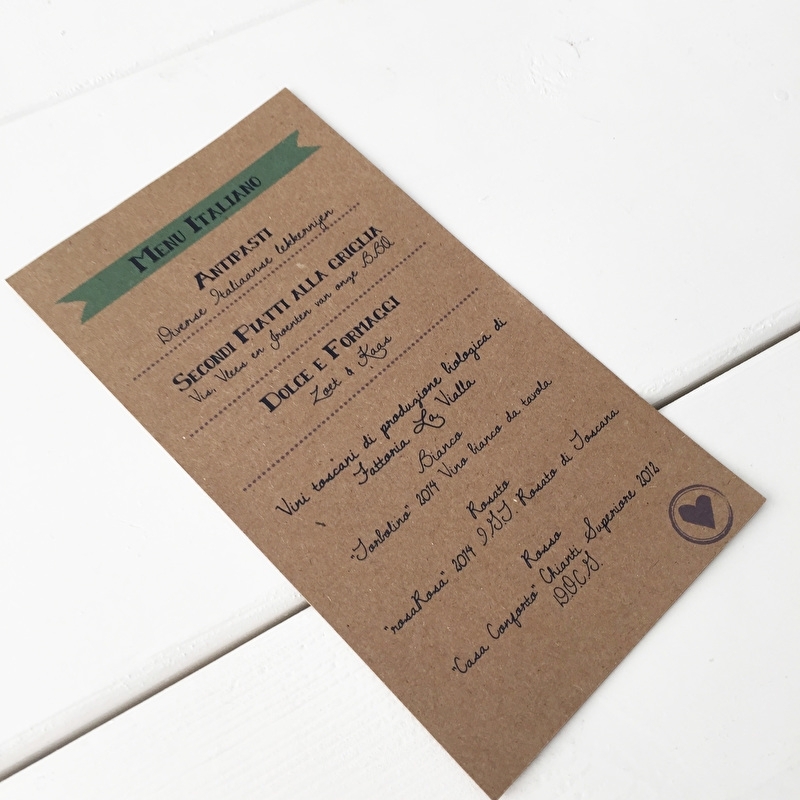 Menu Italiano
Antipasti
Diverse Italiaanse lekkernijen
Secondi Piatti alla griglia
Vis, Vlees en Groenten van onze BBQ
Dolce e Formaggi
Zoet & Kaas
Vini toscani di produzione biologica di
Fattoria La Vialla
Bianco
"Torbolino" 2014 Vino bianco da tavola
Rosato
"rosaRosa" 2014 IGT Rosato di Toscana
Rosso
"Casa Conforto" Chianti Superiore 2012
D.O.C.G.